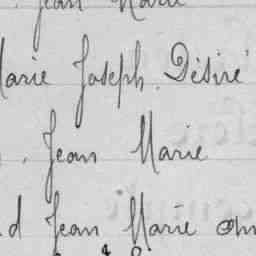 Jean Marie
Marie Joseph Désiré
Jean Marie
Jean Marie